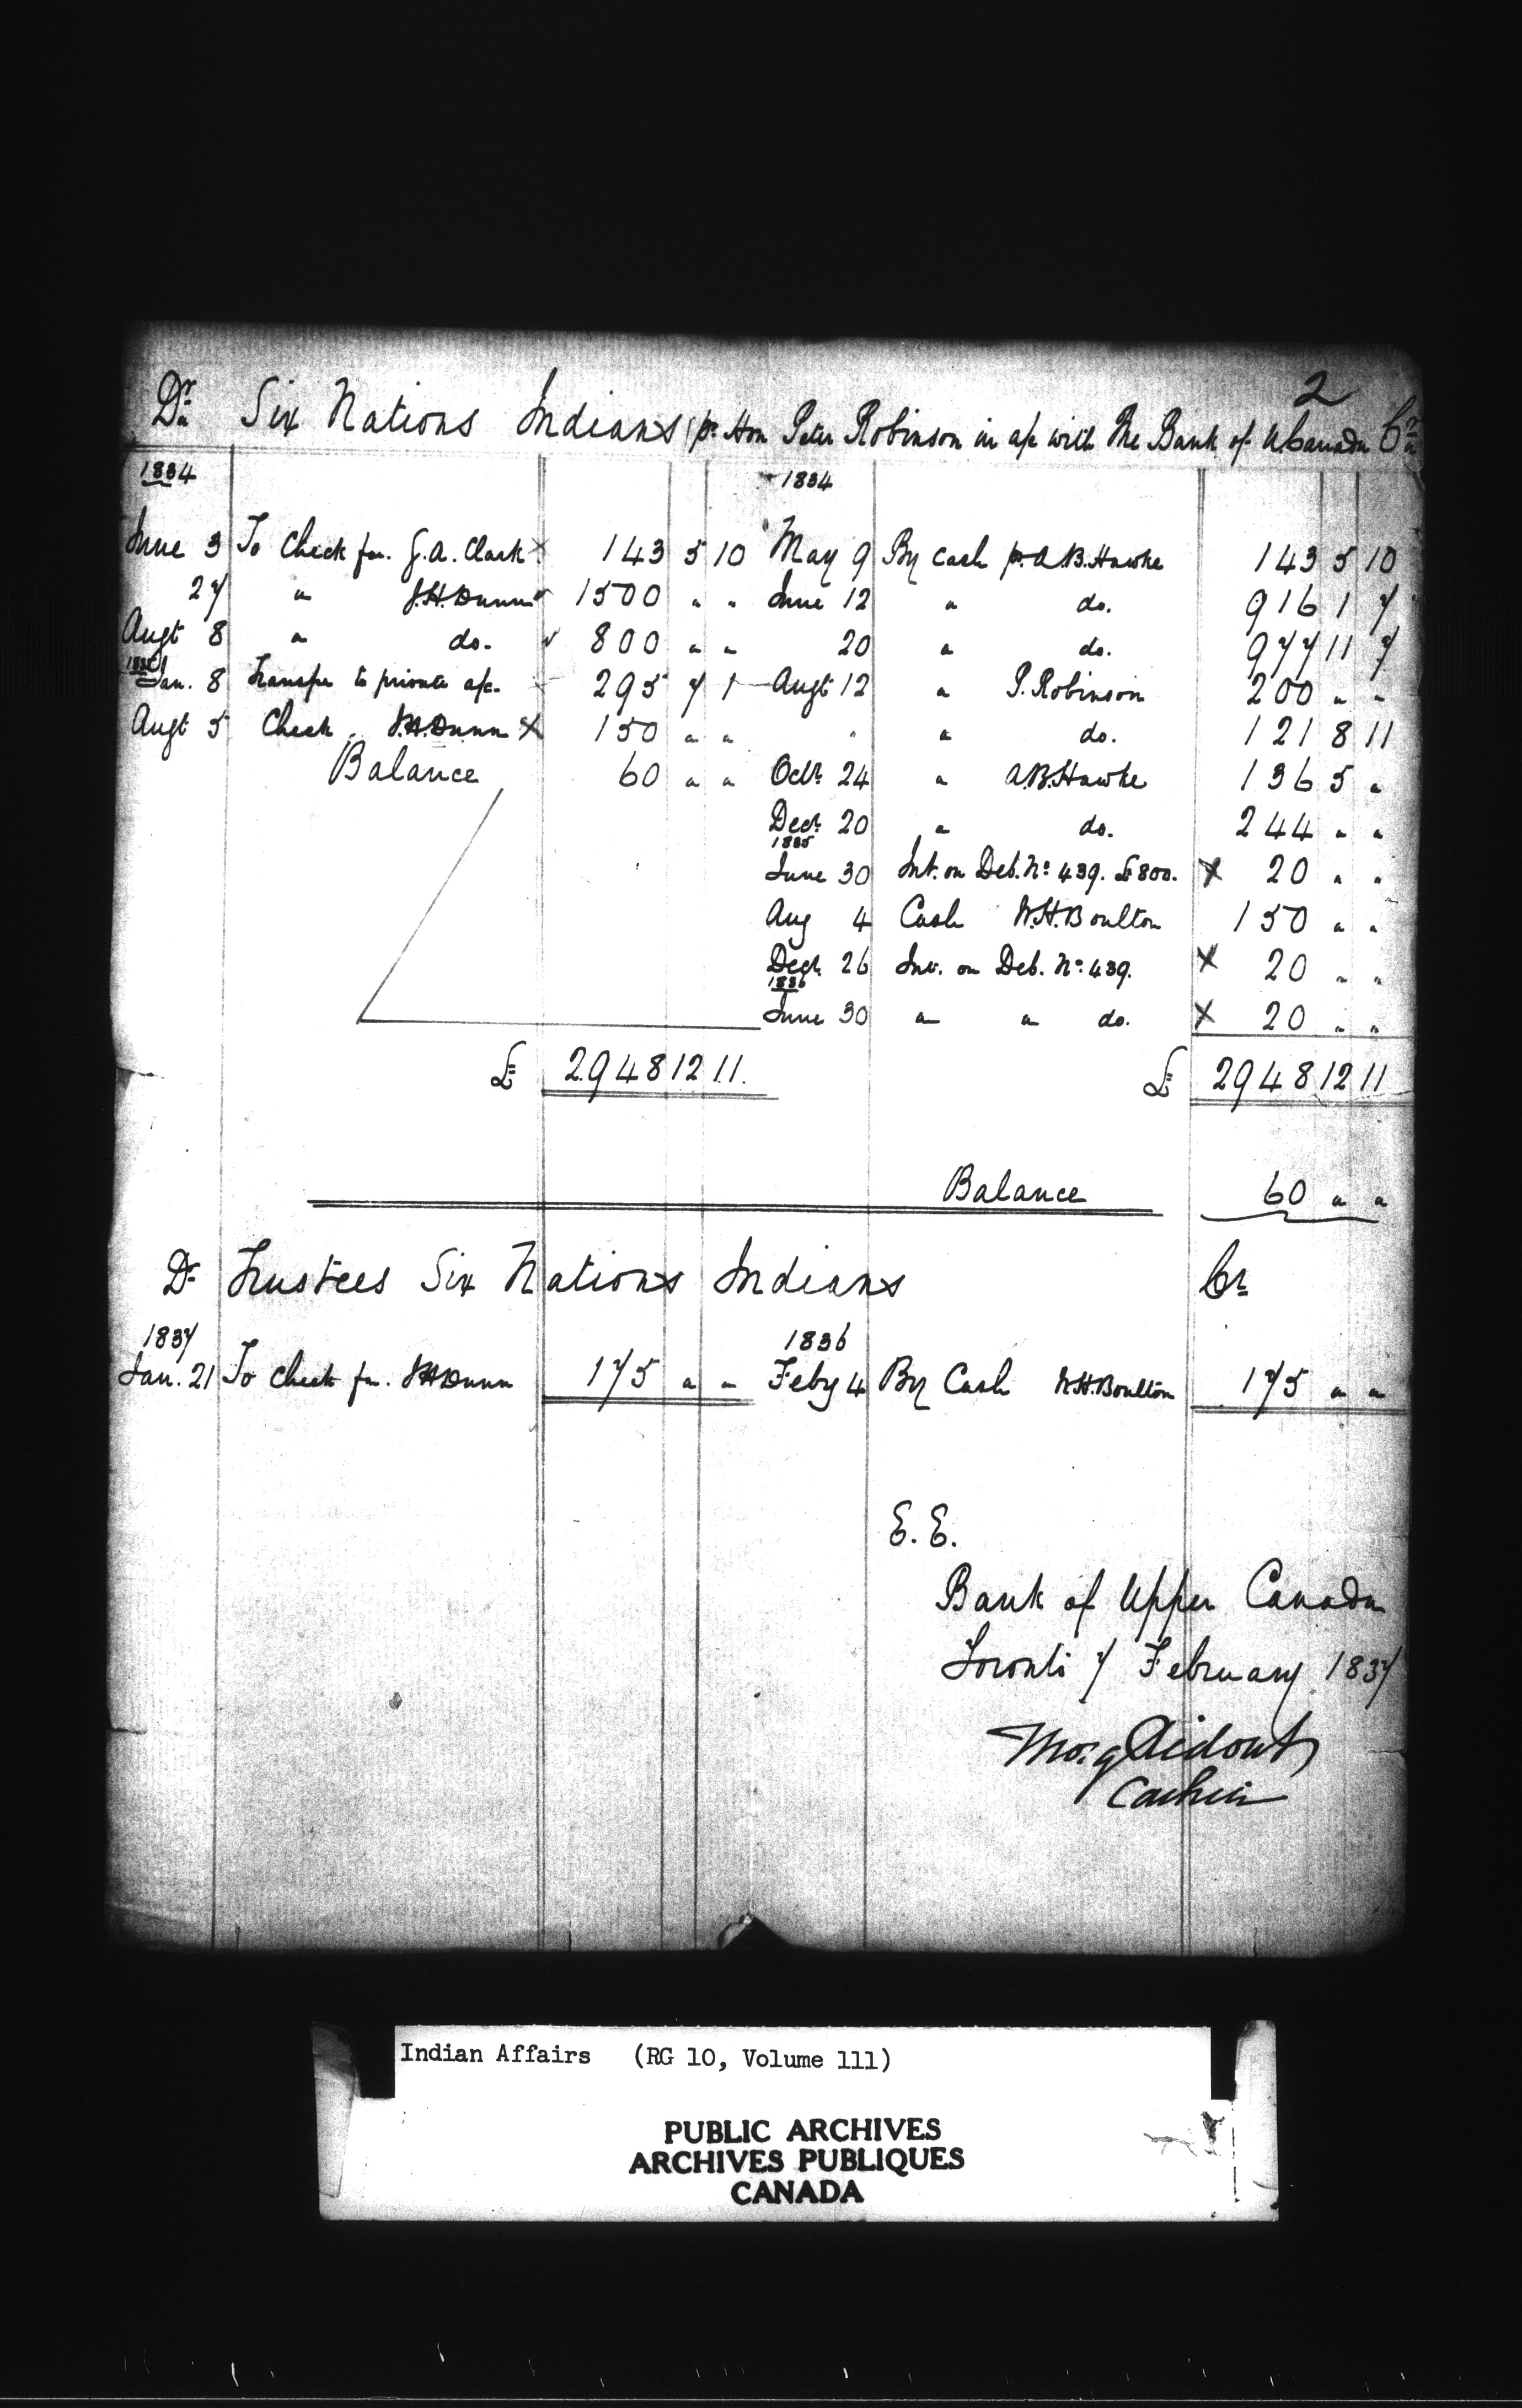 2
Dr Six Nations Indians pr Hon Peter Robinson in a/c with The Bank of U Canada Cr
1834 1834
June 3 To Check fav. J. A. Clark x 143 5 10 May 9 By cash pr A B. Hawke 143 5 10
27 " J. H. Dunn 1500 " " June 12 " do. 916 1 7
Augt 8 " do. 800 " " 20 " do. 977 11 7
1835 Jan. 8 Transfer to private a/c. 295 7 1 Augt 12 " P. Robinson 200 " "
Augt 5 Check J. H. Dunn x 150 " " " " do. 121 8 11
Balance 60 " " Octr 24 " A. B. Hawke 136 5 "
Decr 20 " do. 244 " "
1835
June 30 Int. on Deb. No 439. £800. x 20 " "
Aug 4 Cash W. H. Boulton 150 " "
Decr 26 Int. on Deb. No 439. x 20 " "
1836
June 30 " " do. x 20 " "
£ 2948 12 11. £ 2948 12 11
Balance 60 " "
Dr Trustees Six Nations Indians Cr
1837 1836
Jan. 21 To Check fav. J H Dunn 175 " " Feby 4 By Cash W. H. Boulton 175 " "
E. E.
Bank of Upper Canada
Toronto 7 February 1837
Thos. G Ridout
Cashier
Indian Affairs (RG 10, Volume 111)
PUBLIC ARCHIVES
ARCHIVES PUBLIQUES
CANADA